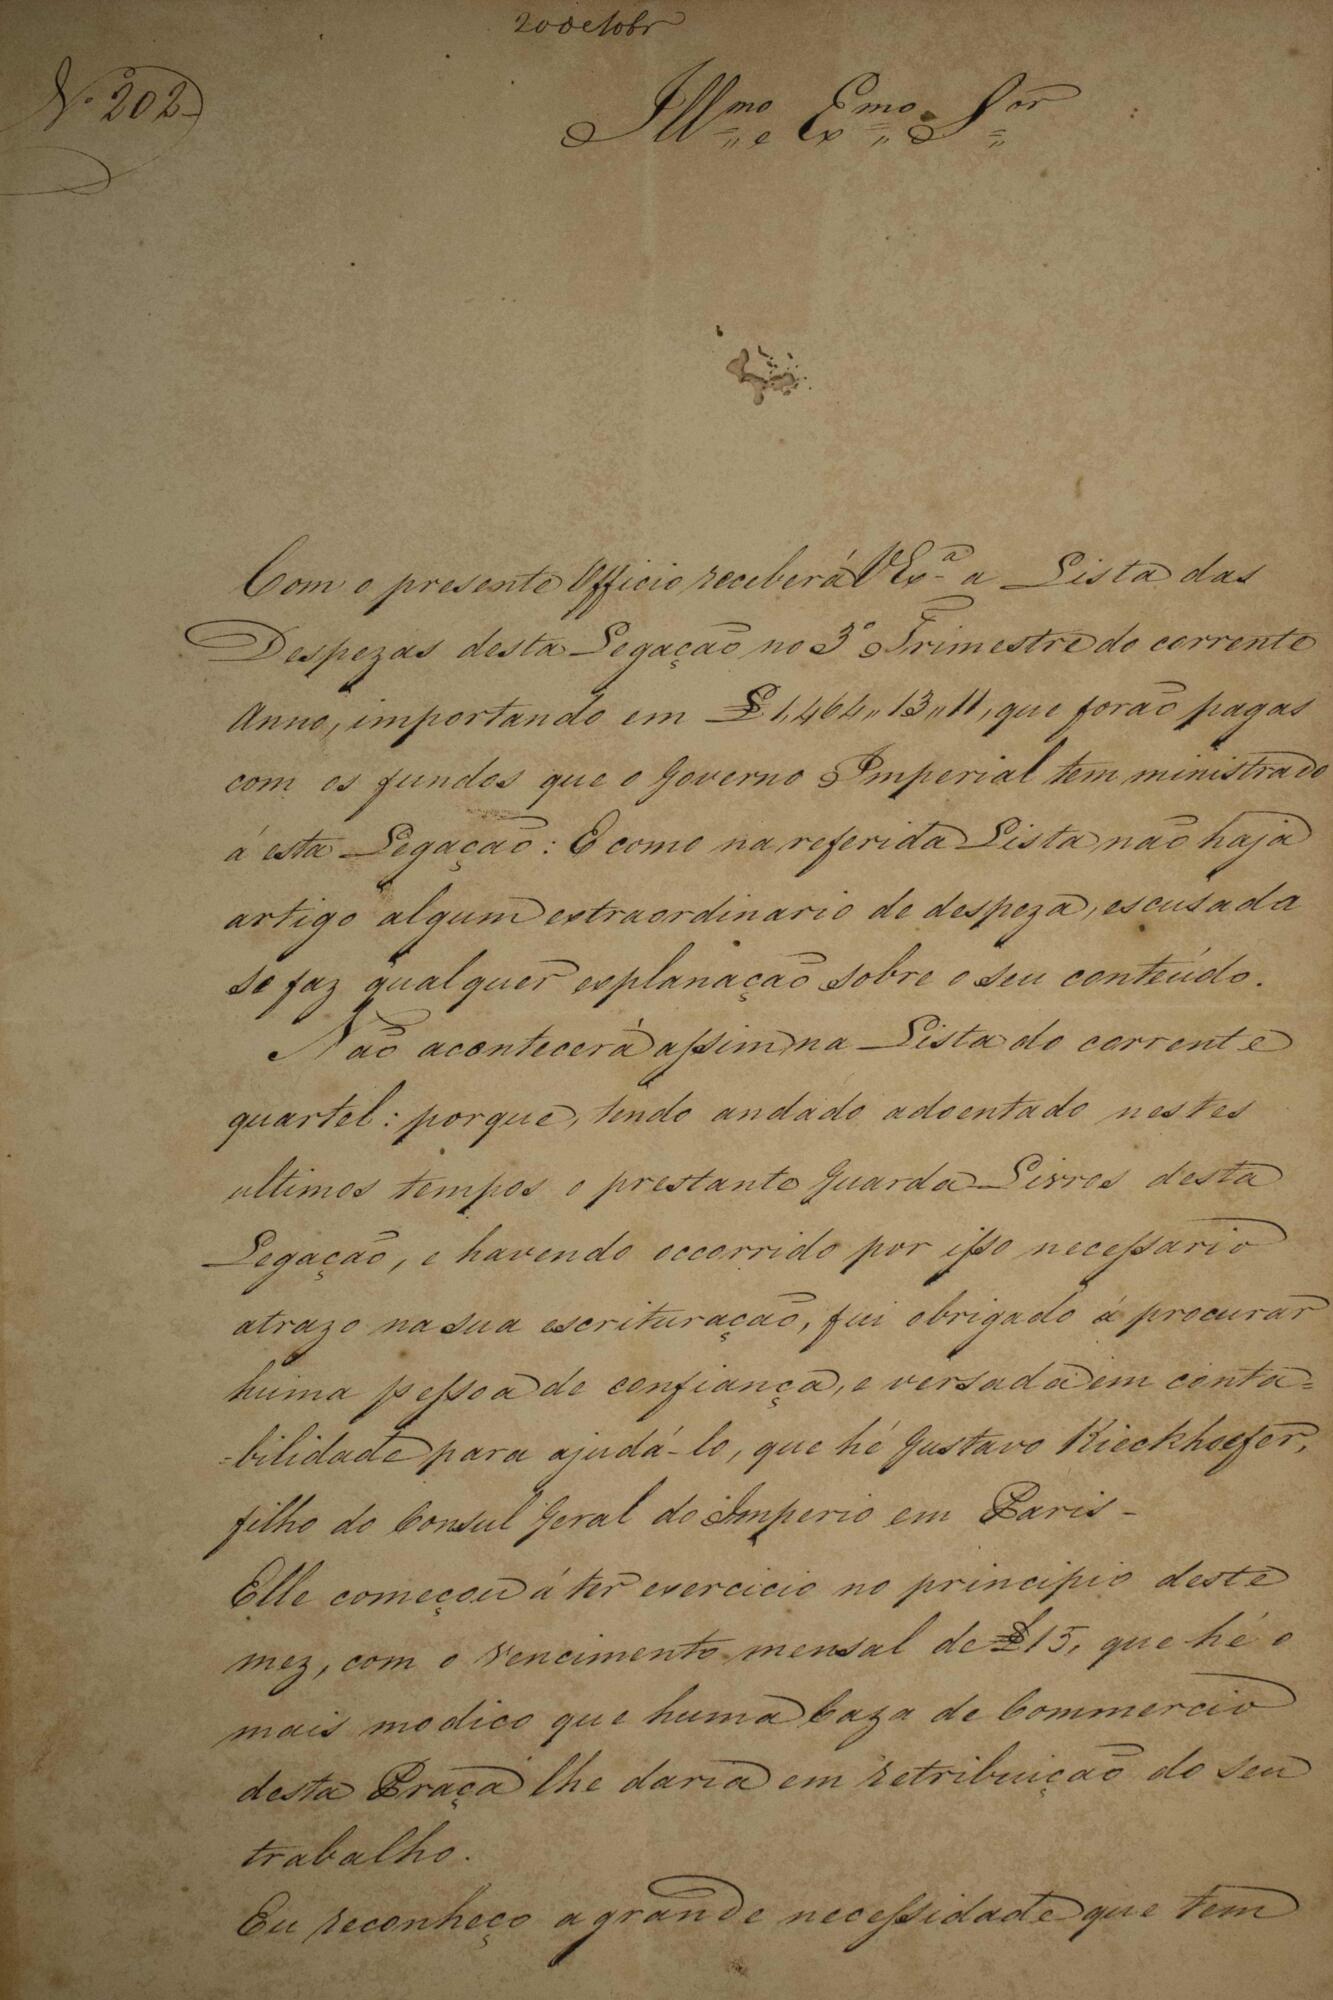 20 octobr
N.º 202
Ill.mo e Ex.mo Sor
Com o presente Officio receberá V Ex.a a Lista das
Despezas desta Legação no 3.º Trimestre do corrente
Anno, importando em £ 1,464,, 13,, 11, que forão pagas
com os fundos que o Governo Imperial tem ministrado
á esta Legação: E como na referida Lista não haja
artigo algum extraordinario de despeza, escusada
se faz qualquer explanação sobre o seu conteúdo.
Não acontecerá assim na Lista do corrente
quartel: porque, tendo andado adoentado nestes
ultimos tempos o prestante Guarda Livros desta
Legação, e havendo occorrido por isso necessario
atrazo na sua escrituração, fui obrigado á procurar
huma pessoa de confiança, e versada em conta=
=bilidade para ajudá-lo, que hé Gustavo Kieckhoefer,
filho do Consul Geral do Imperio em Paris -
Elle começou á ter exercicio no principio deste
mez, com o vencimento mensal de £ 15, que hé o
mais modico que huma Caza de Commercio
desta Praça lhe daria em retribuição do seu
trabalho.
Eu reconheço a grande necessidade que tem